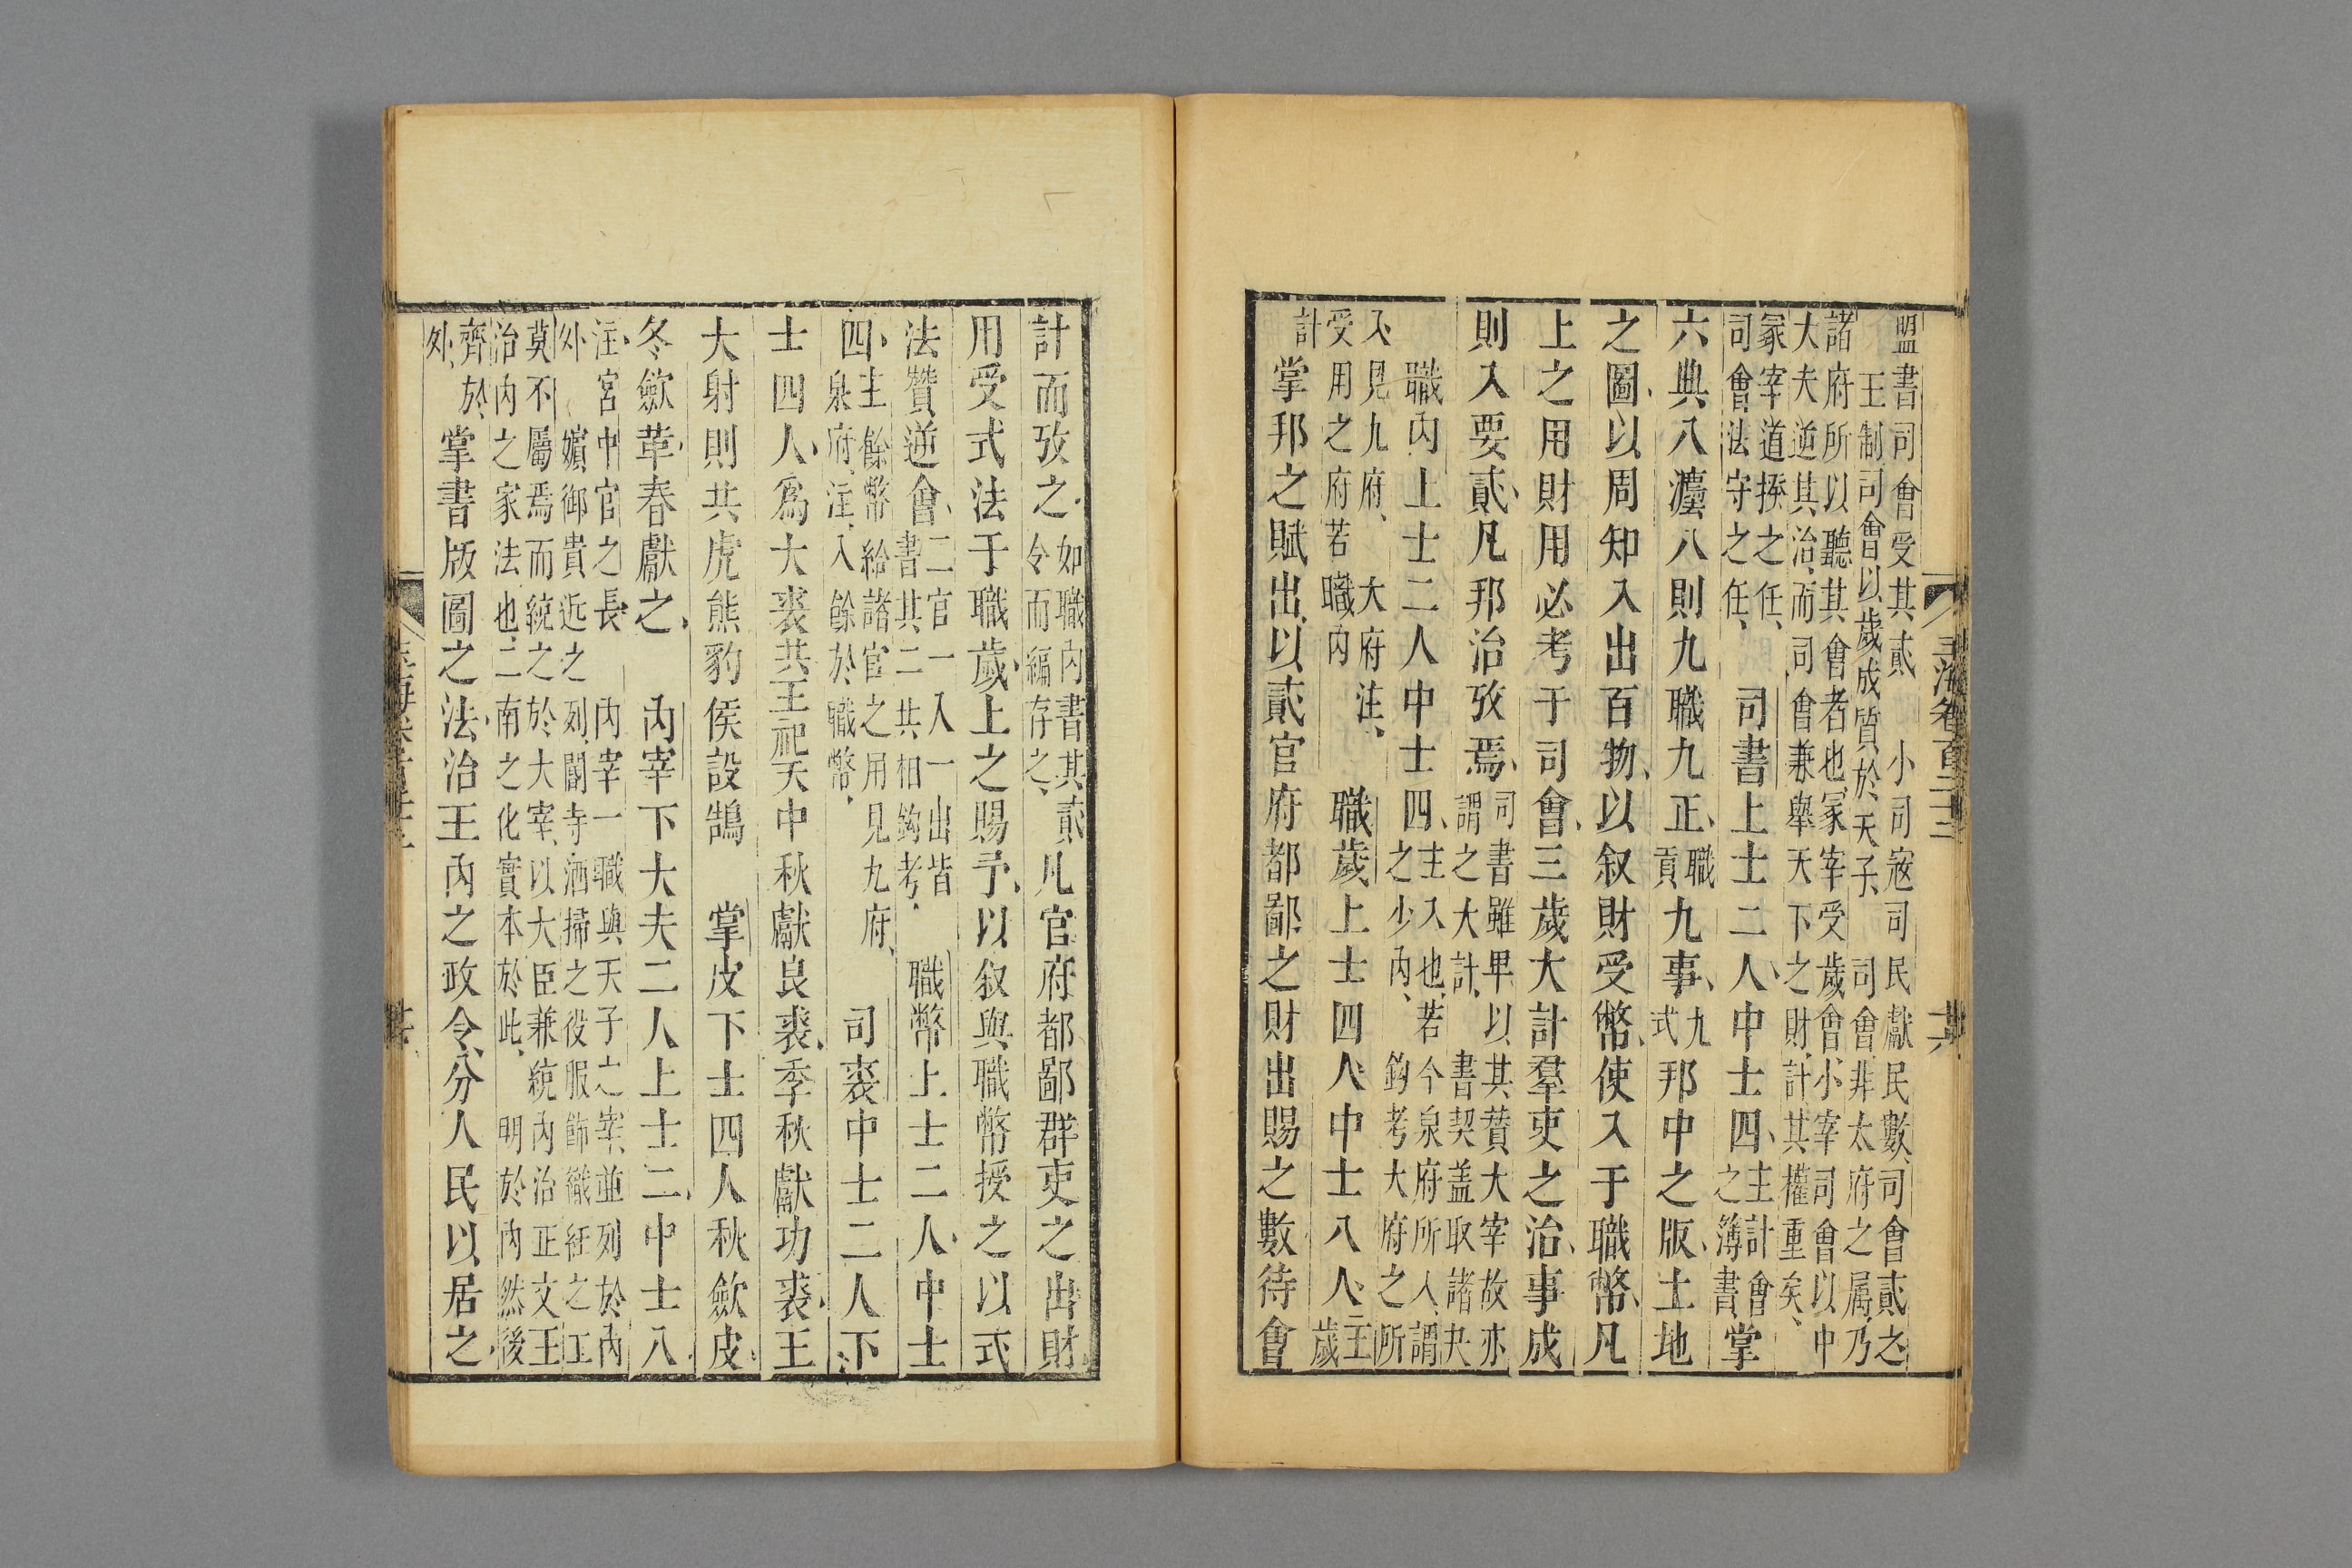 盟書司會受其貳　小司寇司民獻民數司會貳之
王制司會以歲成質於天子　司會非太府之属乃
諸府所以聽其會者也冢宰受歲會小宰司會以中
大夫逆其治而司會兼舉天下之財計其權重矣
冢宰道揆之任
司會法守之任　司書上士二人中士四主計會
之簿書掌
六典八灋八則九職九正職
貢九事九
式邦中之版土地
之圖以周知入出百物以叙財受幣使入于職幣凡
上之用財用必考于司會三歲大計羣吏之治事成
則入要貳凡邦治攷焉司書雖卑以其贊大宰故亦
謂之大計　書契盖取諸夬
職内上士二人中士四主入也若今泉府所入謂
之少内　鈎考大府之所
入見九府　大府注
受用之府若職内　職歲上士四人中士八人主
歲
計掌邦之賦出以貳官府都鄙之財出賜之數待會
玉海卷百二十三　十六
計而攷之如職内書其貳
令而編存之凡官府都鄙群吏之出財
用受式法于職歲上之賜予以叙與職幣授之以式
法贊逆會二官一入一出皆
書其二共相鈎考　職幣上士二人中士
四主餘幣給諸官之用見九府
泉府注入餘於職幣　司裘中士二人下
士四人爲大裘共王祀天中秋獻良裘季秋獻功裘王
大射則共虎熊豹侯設鵠　掌皮下士四人秋歛皮
冬歛革春獻之　内宰下大夫二人上士二中士八
注宫中官之長　内宰一職與天子之宰並列於内
外　嬪御貴近之列閽寺洒掃之役服飾織紝之工
莫不屬焉而統之於大宰以大臣兼統内治正文王
治内之家法也二南之化實本於此　明於内然後
齊於
外掌書版圖之法治王内之政令分人民以居之